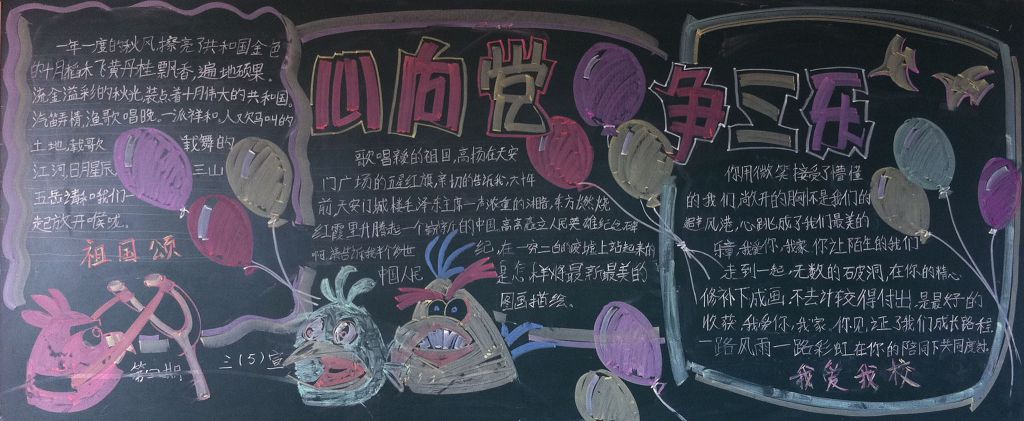 一年一度的秋风,擦亮了共和国金色
的十月稻禾飞黄丹桂飘香,遍地硕果。
流金溢彩的秋光,装点着十月伟大的共和国。
汽笛弄情,渔歌唱晚,一派祥和人欢马叫的
土地,载歌载舞的
江河,日月星辰,三山
五岳请和我们一
起放开喉咙。
祖国颂
第一期
三(5)宣
心向党 争三乐
歌唱 的祖国,高扬在天安
门广场的五星红旗,亲切的告诉我,六十年
前天安门城楼毛泽东主席一声浓重的湘音,东方燃烧
红霞里升腾起一个崭新的中国,高高矗立人民英雄纪念碑
啊,
中国人民
纪,在一穷二白的废墟上站起来的
是怎样将最新最美的
图画描绘。
你用微笑接受了懵懂
的我们,敞开的胸怀是我们的
避风港,心跳成了我们最美的
乐章,我爱你,我家,你让陌生的我们
走到一起,无数的 ,在你的精心
修补下成画,不去计较得付出,是最好的
收获,我爱你,我家,你见证了我们成长路程
一路风雨一路彩虹在你的陪同下共同度过.
我爱我校